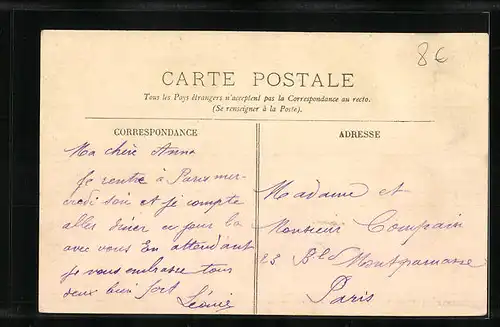 8€
CARTE POSTALE
Tous les Pays étrangers n'acceptent pas la Correspondance au recto.
(Se renseigner à la Poste).
CORRESPONDANCE
ADRESSE
Ma chère Anna
Je rentre à Paris mer-
credi soir et je compte
aller dîner ce jour là
avec vous En attendant
je vous embrasse tous
deux bien fort
Léonie
Madame et
Monsieur Compain
23 Bld Montparnasse
Paris